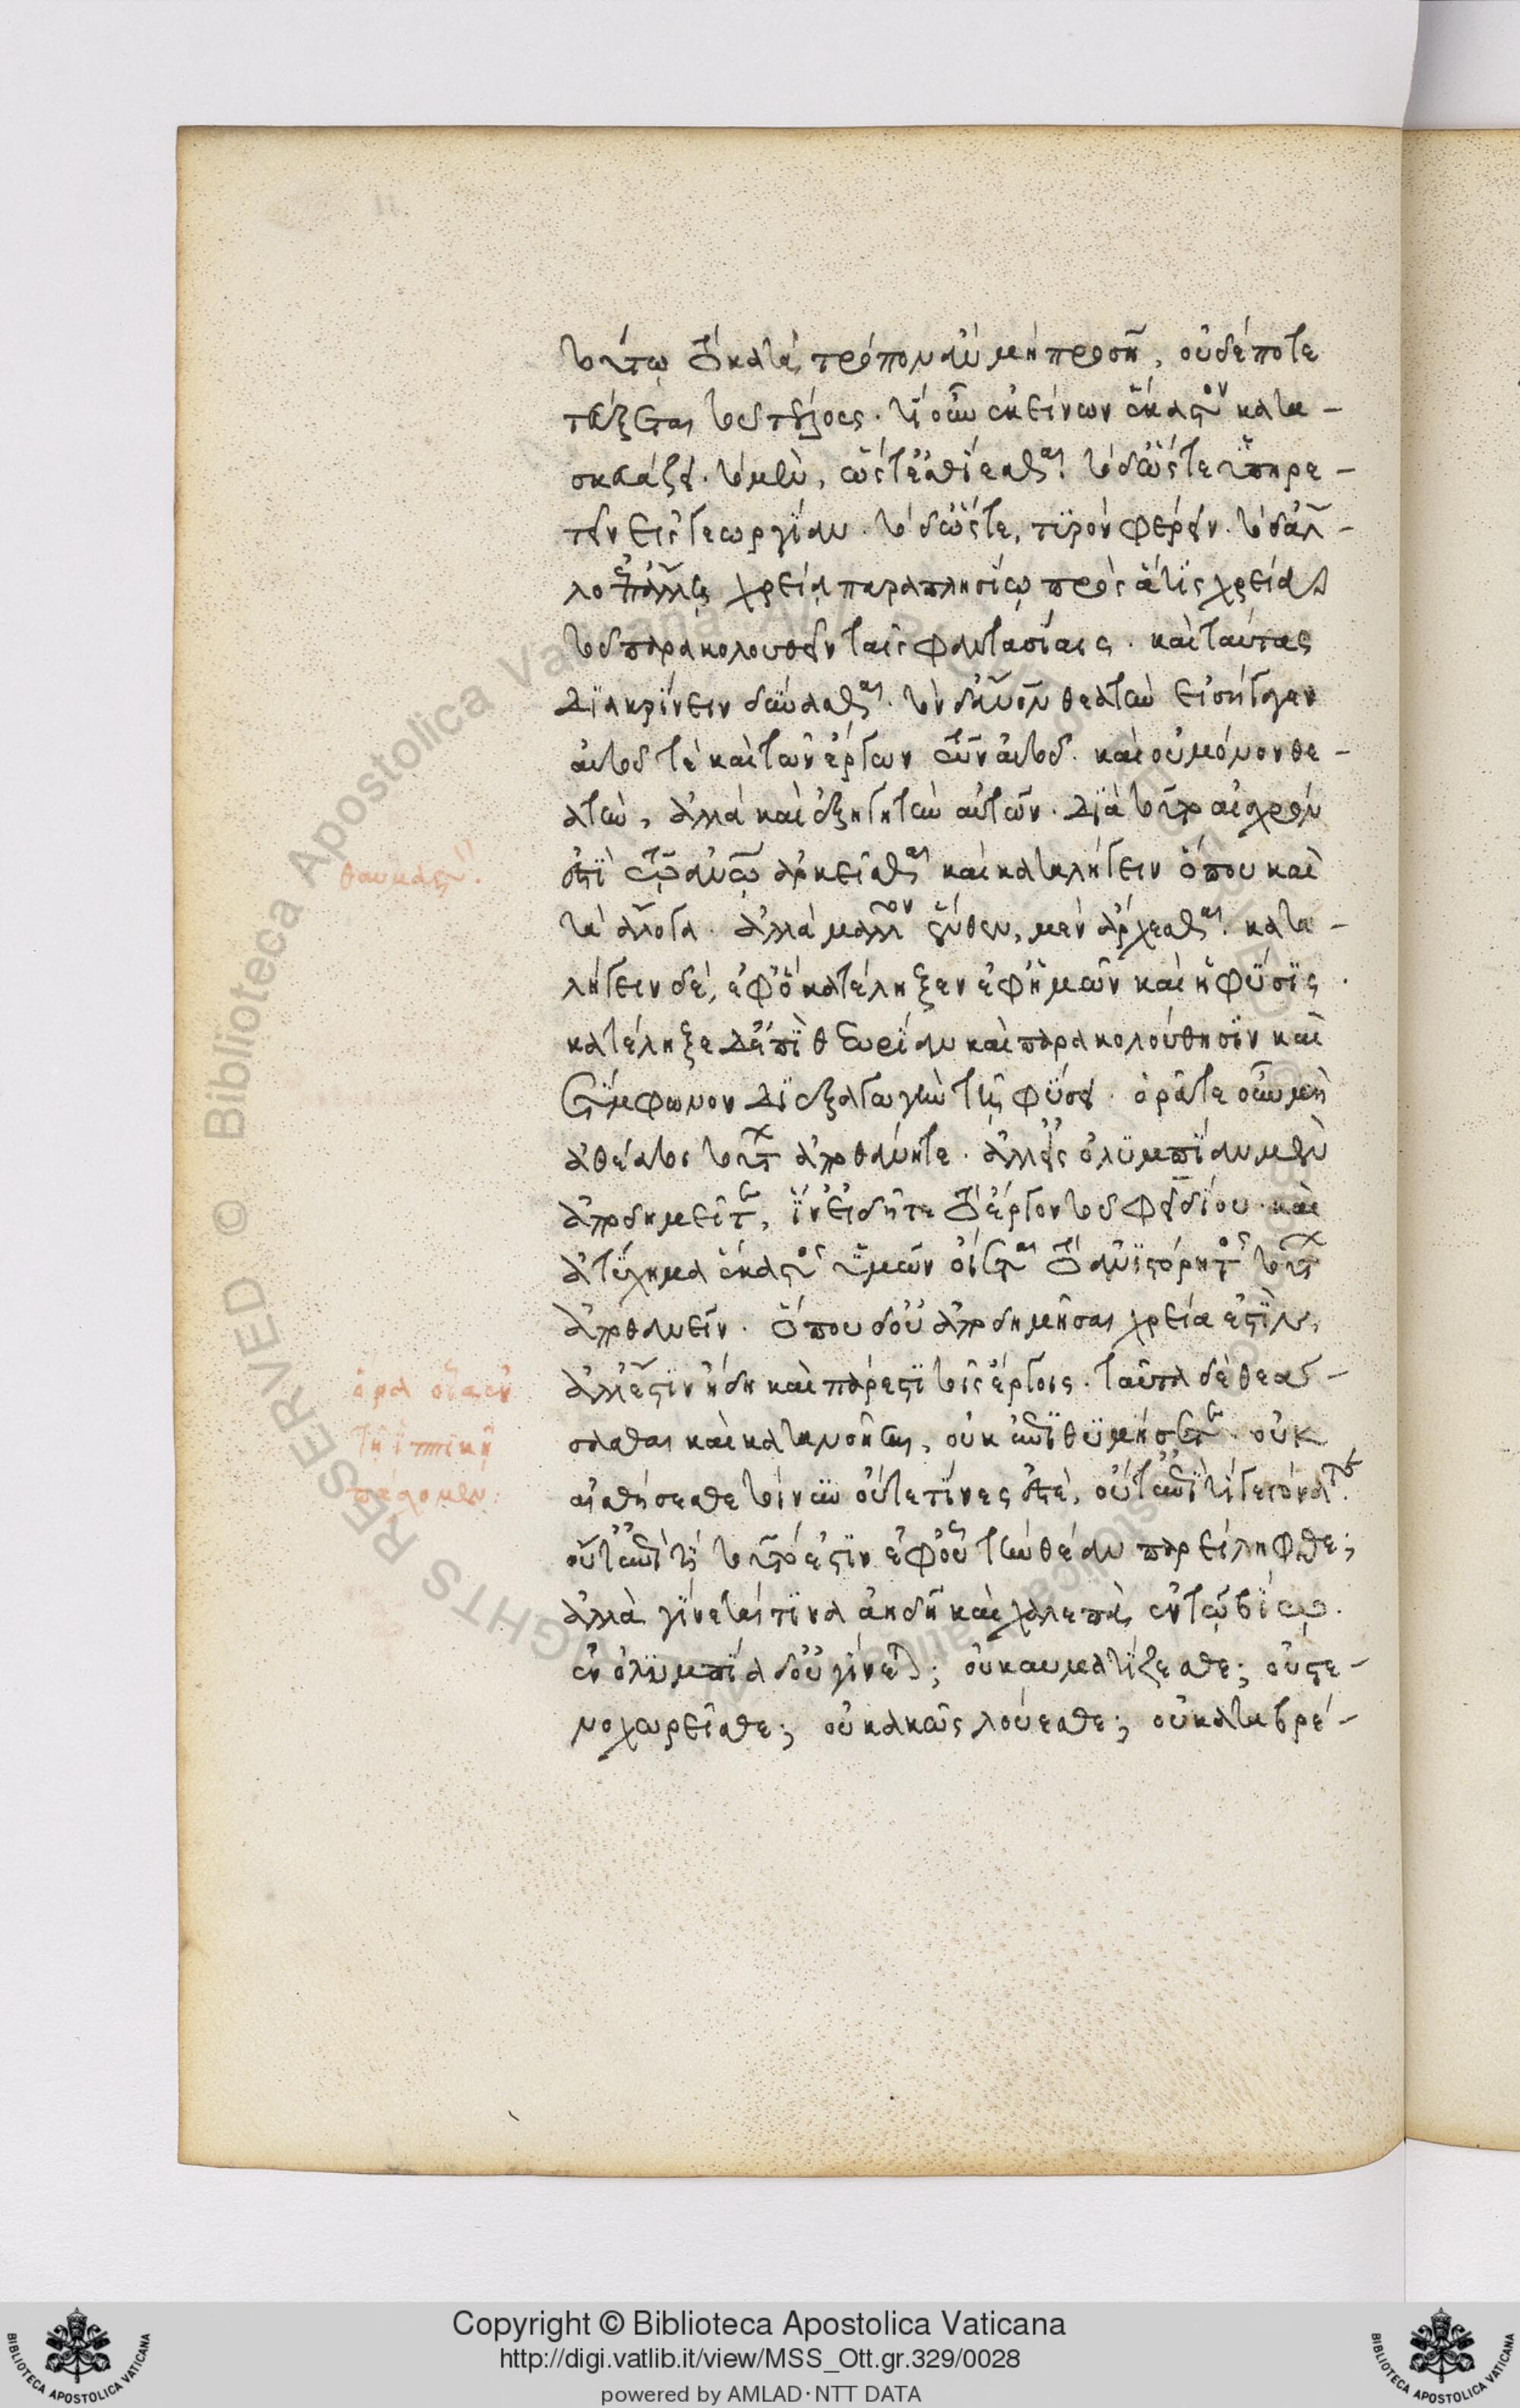 τούτῳ τὸ κατὰ τρόπον ἂν μὴ προσῆ, οὐδέποτε
τεύξεται τοῦ τέλους. τί οὖν ἐκείνων ἕκαστον κατα-
σκευάζει. τὸ μὲν, ὥστε ἐσθίεσθαι. τὸ δ' ὥστε ὑπηρε-
τεῖν εἰς γεωργίαν. τὸ δ' ὥστε, τυρὸν φέρειν. τὸ δ' ἄλ-
λο ἐπ' ἄλλῃ χρείᾳ παραπλησίῳ πρὸς ἅ τις χρεία
τοῦ παρακολουθεῖν ταῖς φαντασίαις. καὶ ταύτας
διακρίνειν δύνασθαι. τὸν δ' ἄνθρωπον θεατὴν εἰσήγαγεν
αὐτοῦ τὲ καὶ τῶν ἔργων τῶν αὐτοῦ. καὶ οὐ μόνον θε-
ατὴν, ἀλλὰ καὶ ἐξηγητὴν αὐτῶν. διὰ τοῦτο αἰσχρόν
ἐστὶ τῷ ἀνθρώπῳ ἄρχεσθαι καὶ καταλήγειν ὅπου καὶ
τὰ ἄλογα. ἀλλὰ μᾶλλον ἔνθεν, μὲν ἄρχεσθαι. κατα-
λήγειν δὲ, ἐφ' ὃ κατέληξεν ἐφ' ἡμῶν καὶ ἡ φύσις.
κατέληξε δ' ἐπὶ θεωρίαν καὶ παρακολούθησιν καὶ
σύμφωνον διεξαγωγὴν τῇ φύσει. ὁρᾶτε οὖν μὴ
ἀθέατοι τούτων ἀποθάνητε. ἀλλ' εἰς ὀλυμπίαν μὲν
ἀποδημεῖτε, ἵν' εἰδῆτε τὸ ἔργον τοῦ φειδίου. καὶ
ἀτύχημα ἕκαστος ὑμῶν οἴεται τὸ ἀνιστόρητος τούτων
ἀποθανεῖν. ὅπου δ' οὐδ' ἀποδημῆσαι χρεία ἐστὶν,
ἀλλ' ἔστιν ἤδη καὶ πάρεστι τοῖς ἔργοις. ταῦτα δὲ θεά-
σασθαι καὶ κατανοῆσαι, οὐκ ἐπιθυμήσετε. οὐκ
αἰσθήσεσθε τοίνυν οὔτε τίνες ἐστὲ, οὔτ' ἐπὶ τί γεγόνατε.
οὔτ' ἐπὶ τί τοῦτό ἐστιν ἐφ' οὗ τὴν θέαν παρείληφθε;
ἀλλὰ γίνεταί τινα ἀηδῆ καὶ χαλεπὰ ἐν τῷ βίῳ.
ἐν ὀλυμπίᾳ δ' οὐ γίνεται; οὐ καυματίζεσθε; οὐ στε-
νοχωρεῖσθε; οὐ κακῶς λούεσθε; οὐ καταβρέ-
θαυμαστόν
ὅρα οἷα ἐν
τῇ ἱππικῇ
πάσχομεν:
Copyright © Biblioteca Apostolica Vaticana
http://digi.vatlib.it/view/MSS_Ott.gr.329/0028
powered by AMLAD·NTT DATA